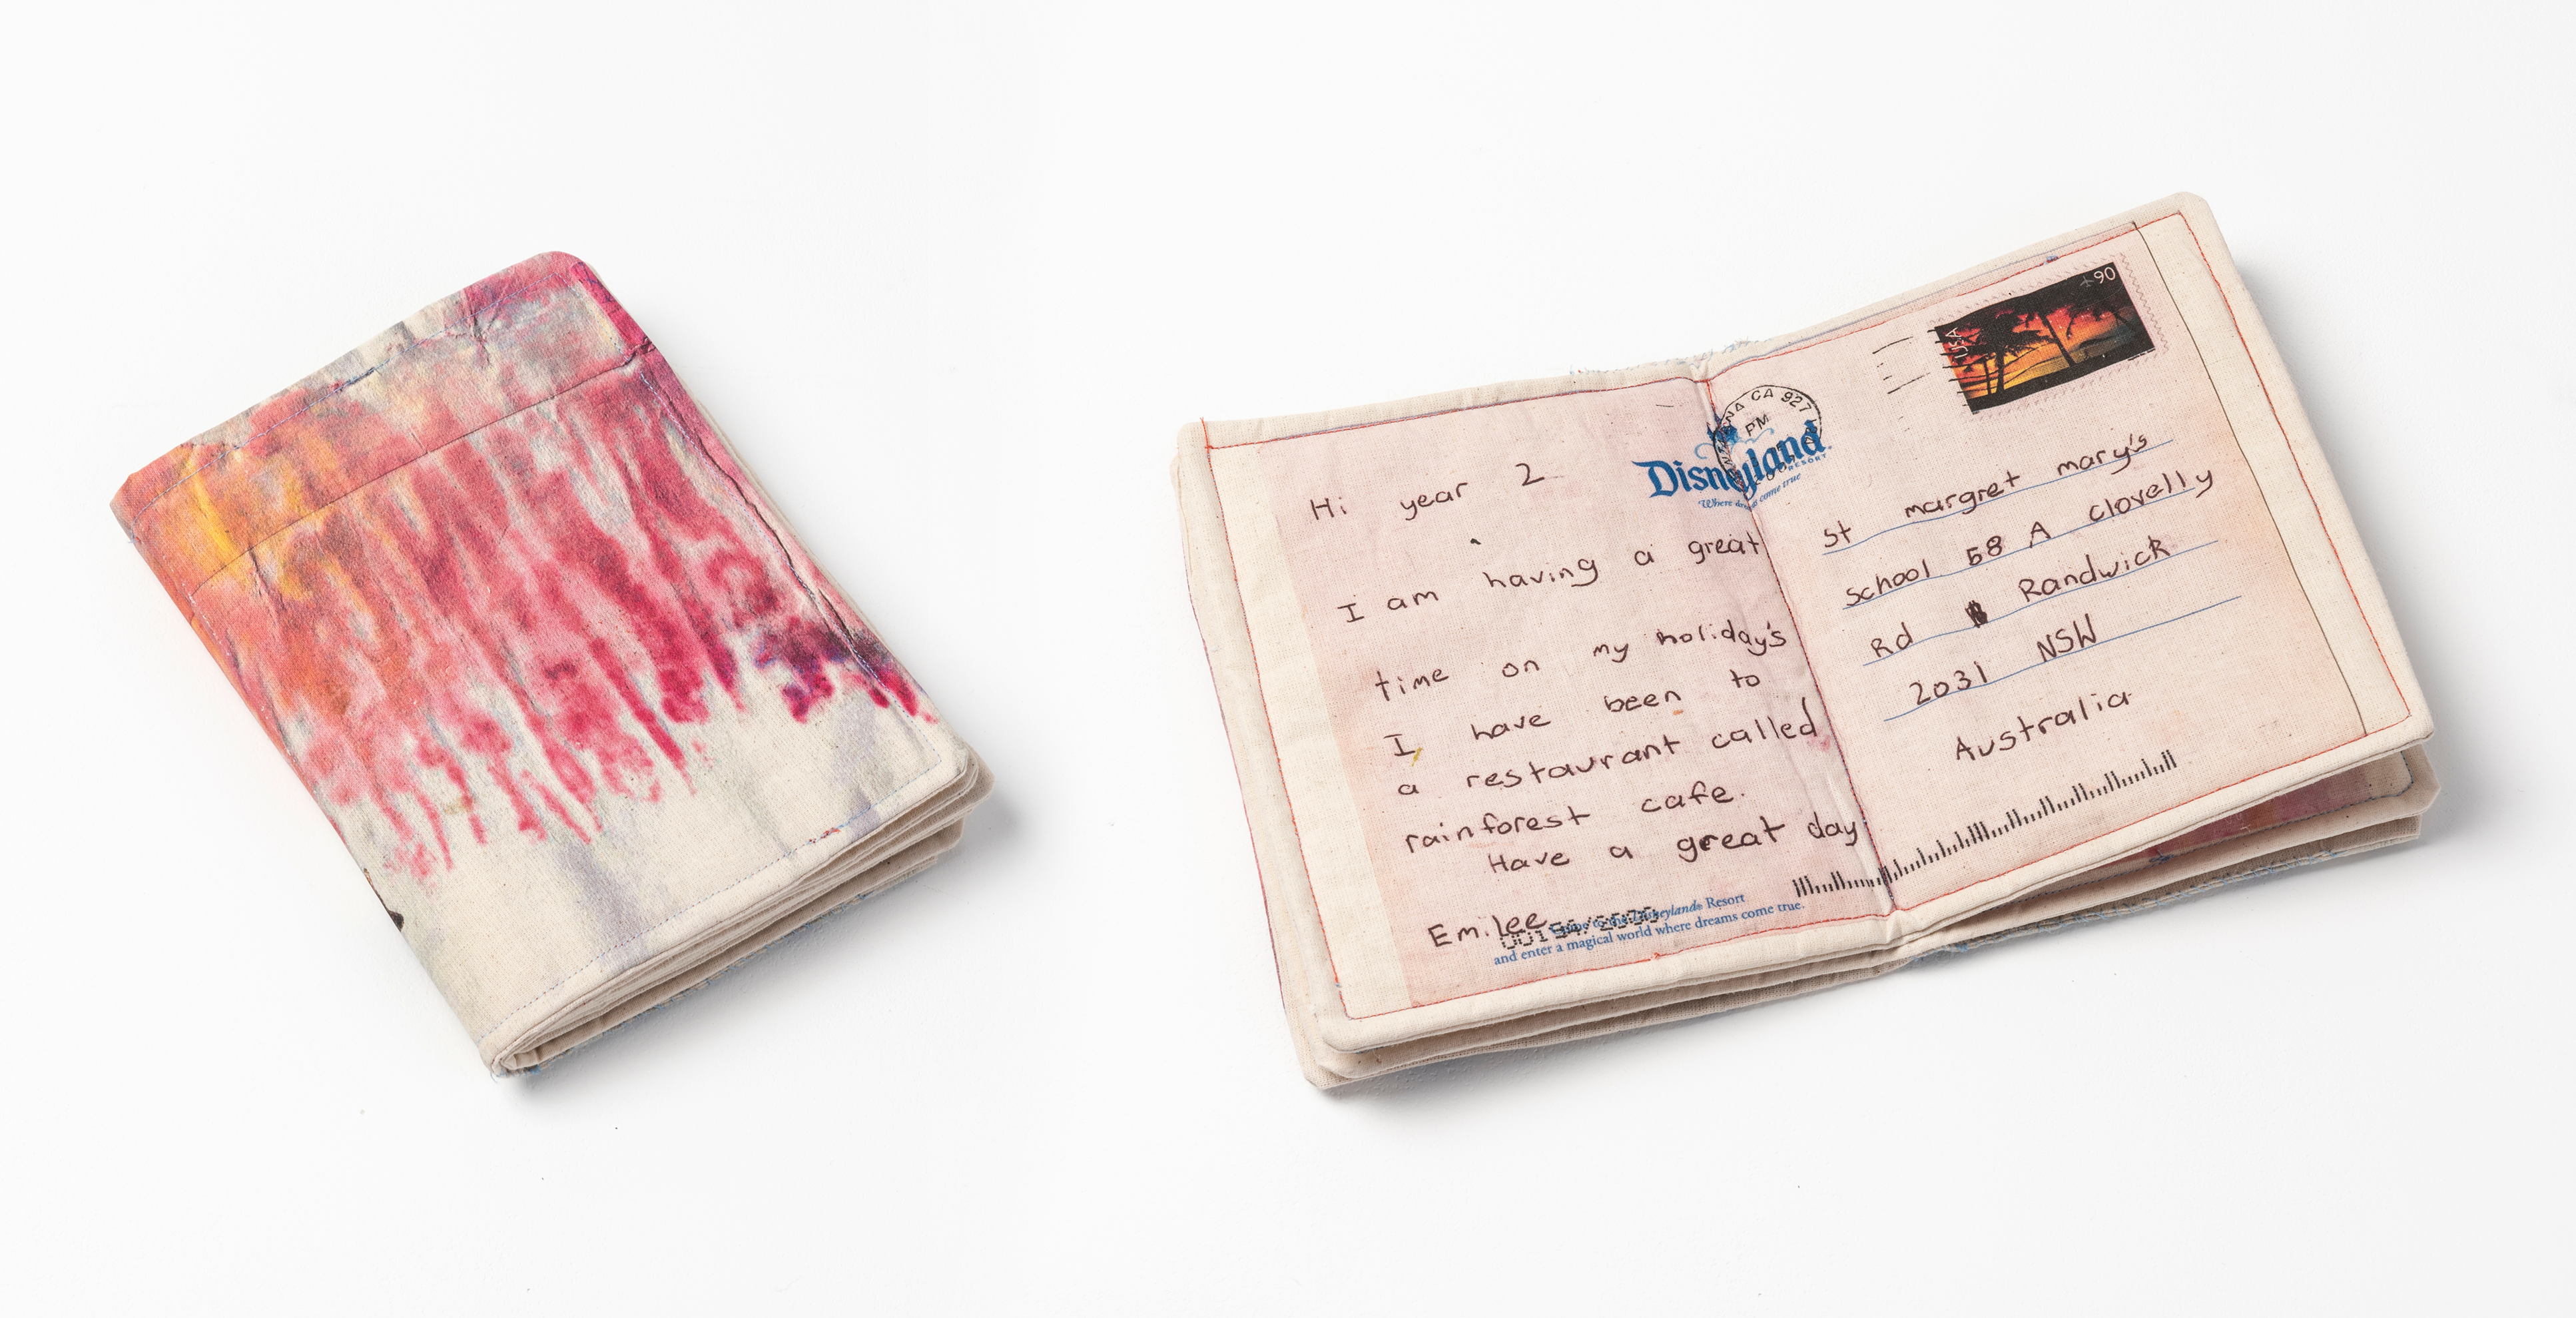 Hi year 2
I am having a great
time on my holiday's
I have been to
a restaurant called
rainforest cafe.
Have a great day
Emilee
Disneyland
RESORT
Where come true
Disneyland® Resort
and enter a magical world where dreams come true.
ANA CA 927
PM
USA
90
st margret mary's
school 58 A clovelly
Rd Randwick
2031 NSW
Australia